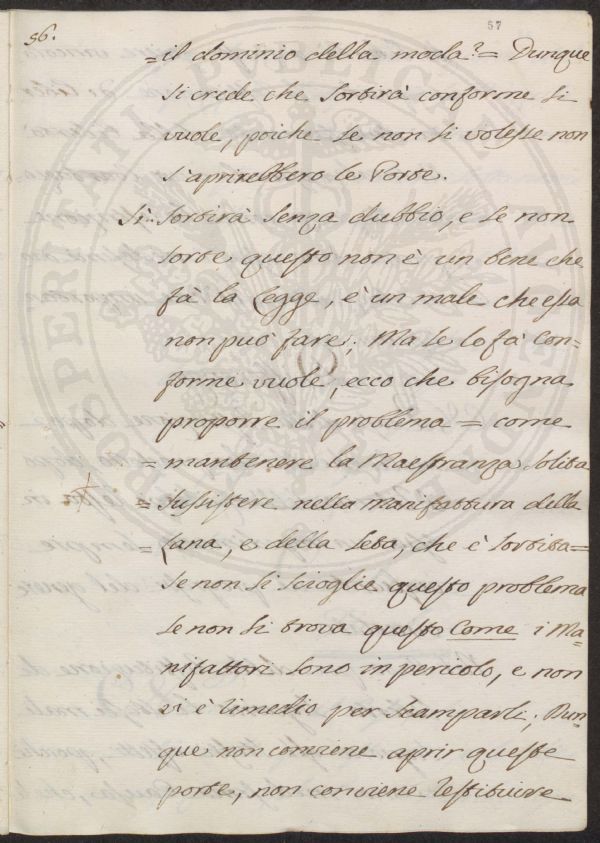 56.
57
= il dominio della moda? = Dunque
si crede che sortirà conforme si
vuole, poiche se non si volesse non
s'aprirebbero le Porte.
Si: sortirà senza dubbio, e se non
sorte questo non è un bene che
fà la Legge, è un male che essa
non può fare; Ma se lo fà con=
forme vuole, ecco che bisogna
proporre il problema = come
= mantenere la Maestranza solita
= sussistere nella manifattura della
= Lana, e della seta, che è sortita =
se non si scioglie questo problema
se non si trova questo Come i Ma=
nifattori sono in pericolo, e non
vi è rimedio per scamparli; Dun=
que non conviene aprir queste
porte, non conviene restituire
PROSPERITATI PUBLICAE AUGENDAE